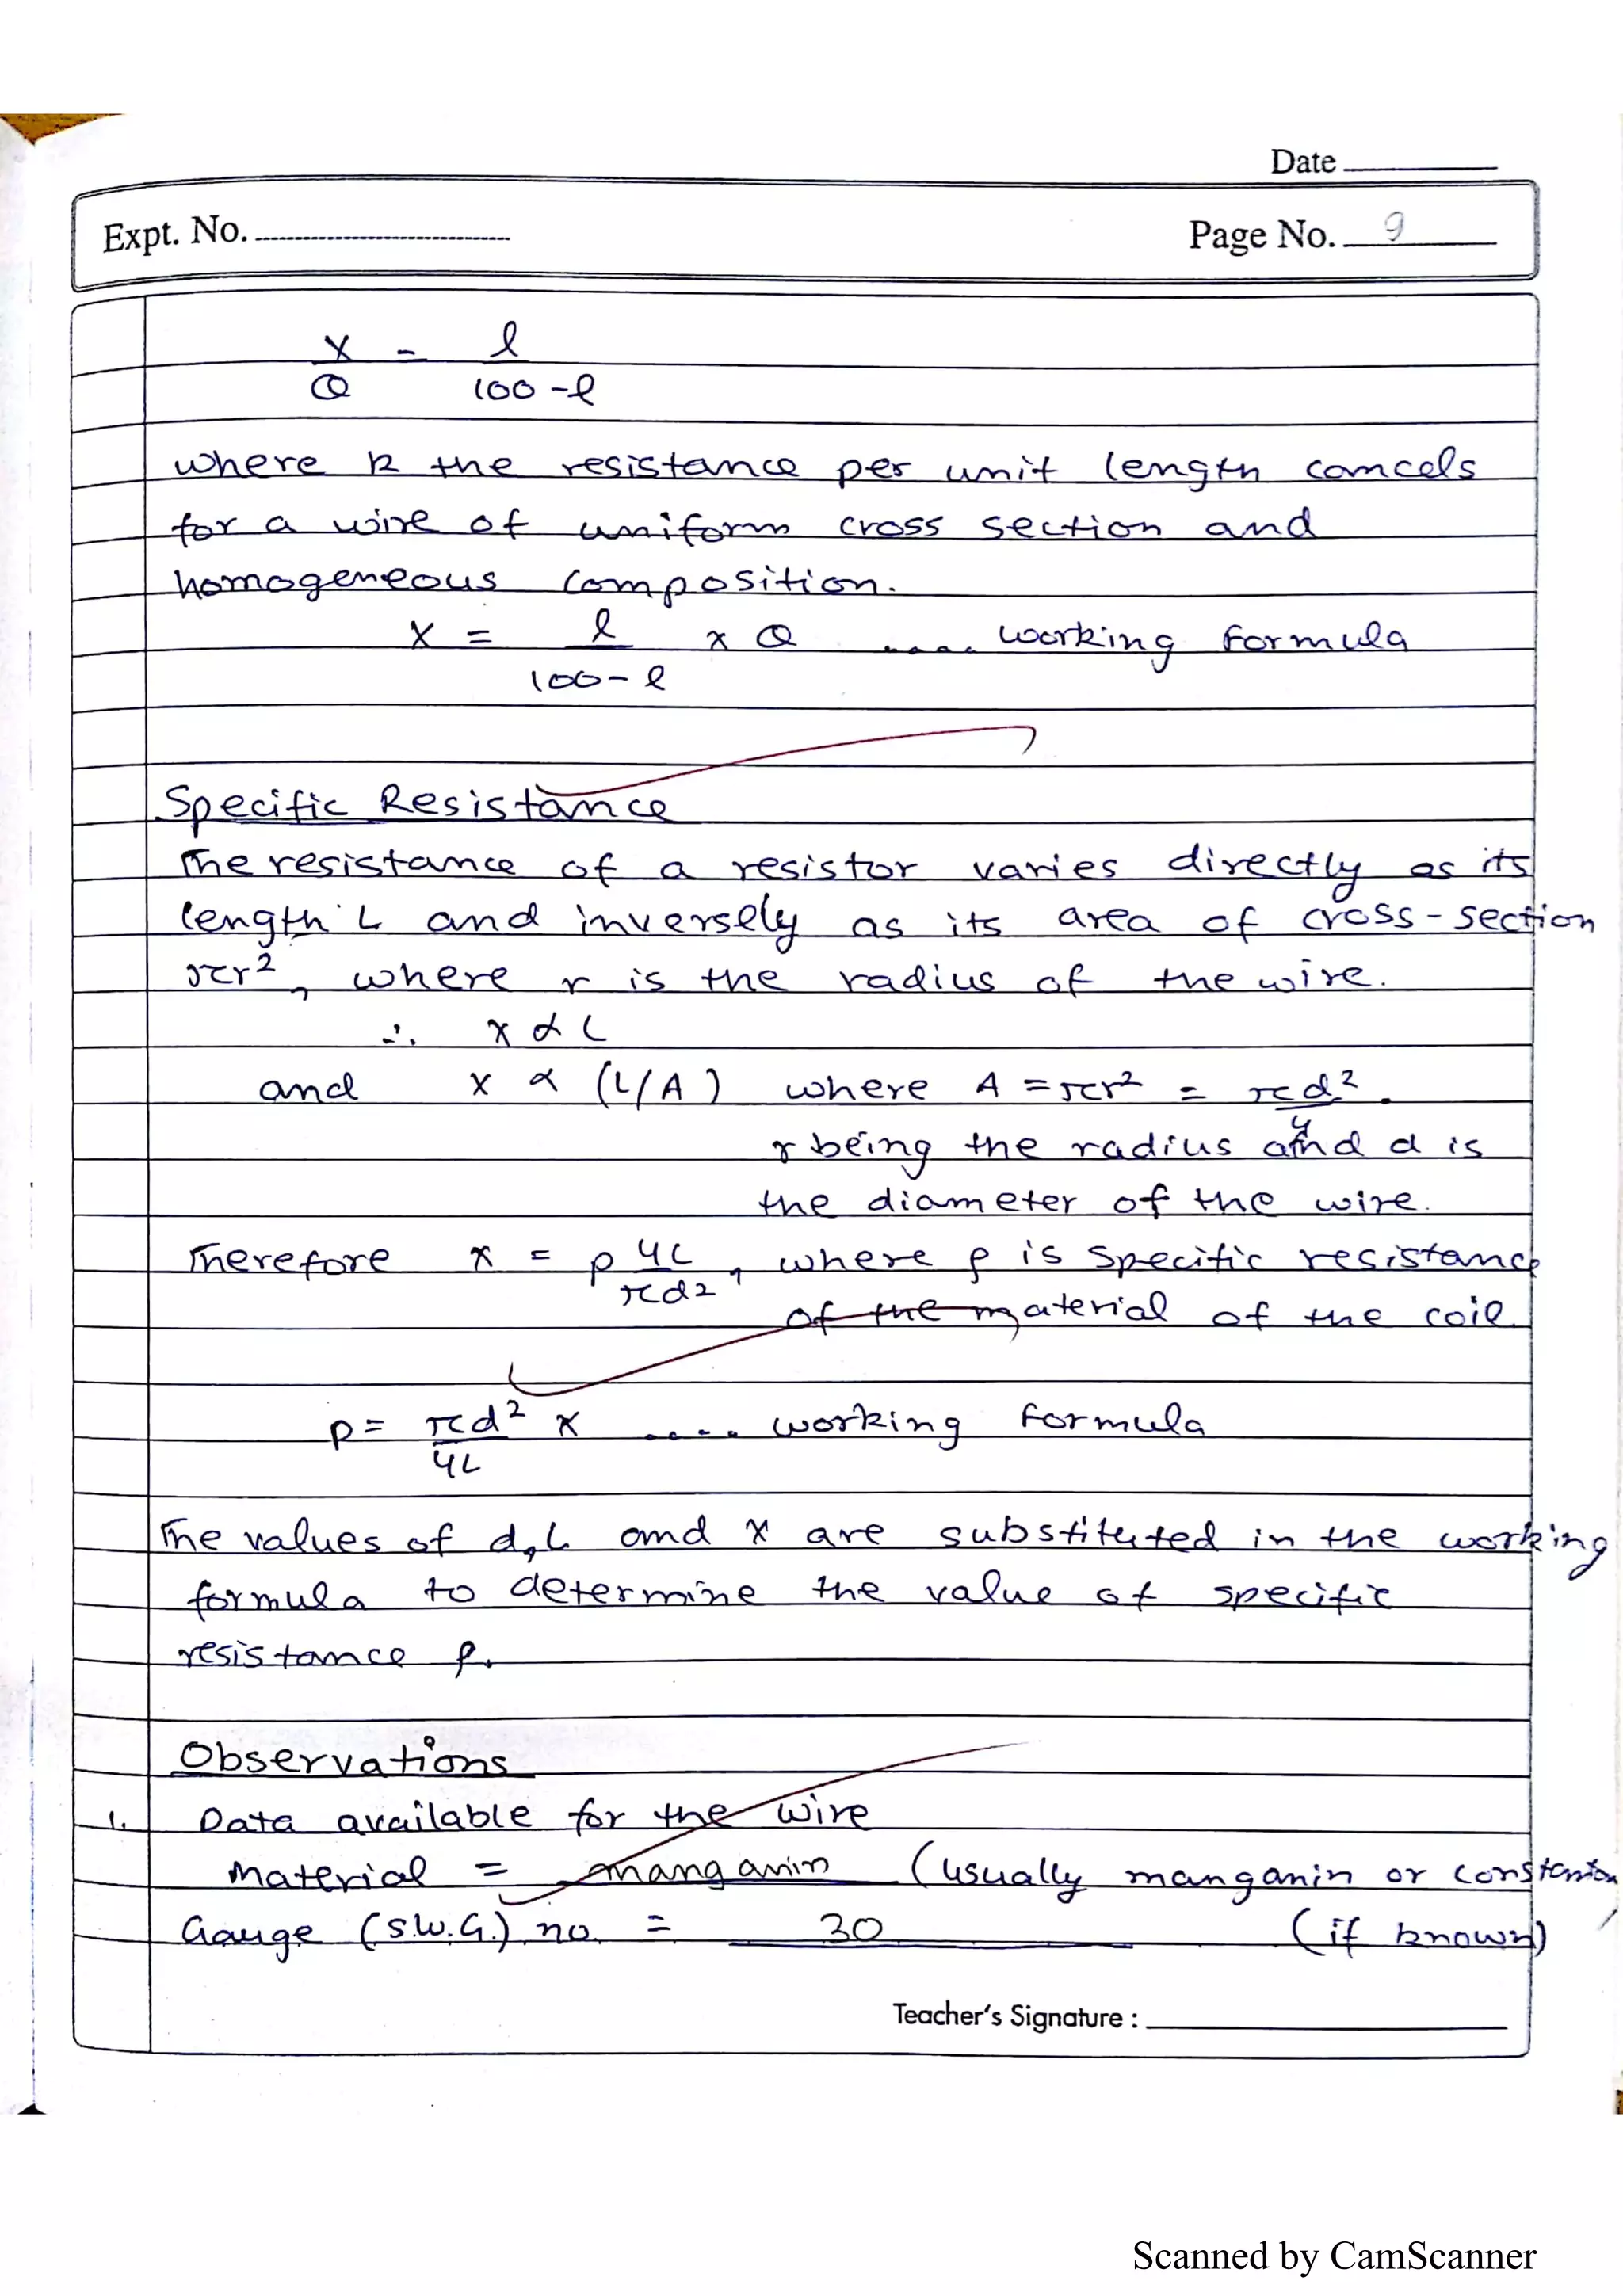 Date
Expt. No.
Page No. 9
X/Q = l/(100-l)
where k the resistance per unit length cancels
for a wire of uniform cross section and
homogeneous composition.
X = l/(100-l) x Q .... working formula
Specific Resistance
The resistance of a resistor varies directly as its
length L and inversely as its area of cross-section
πr², where r is the radius of the wire.
∴ X ∝ L
and X ∝ (L/A) where A = πr² = πd²/4.
r being the radius and d is
the diameter of the wire.
Therefore X = ρ 4L/πd², where ρ is specific resistance
of the material of the coil.
ρ = πd²/4L X .... working formula
The values of d, L and X are substituted in the working
formula to determine the value of specific
resistance ρ.
Observations
1. Data available for the wire
Material = manganin (usually manganin or constantan
Gauge (S.W.G.) no. = 30 (if known)
Teacher's Signature :
Scanned by CamScanner